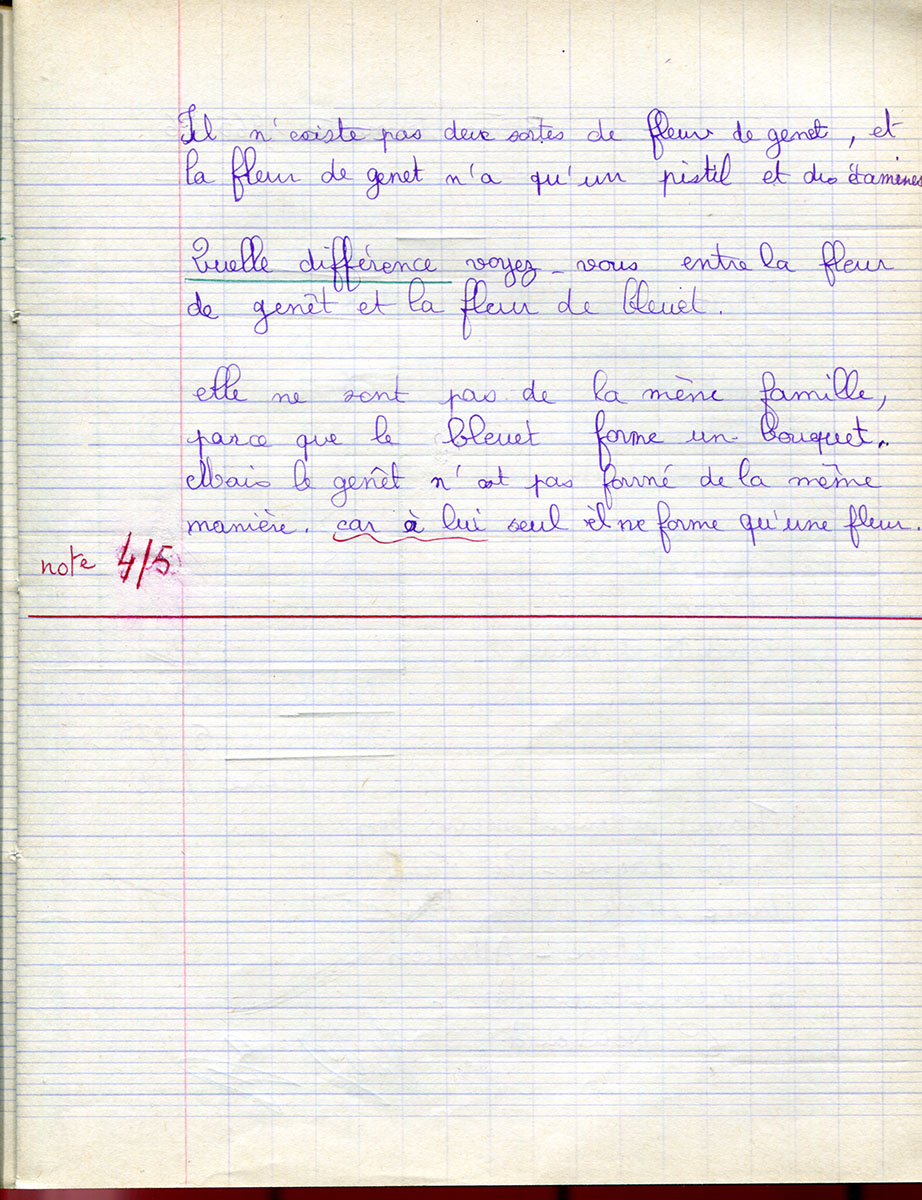 Il n'existe pas deux sortes de fleur de genet, et
la fleur de genet n'a qu'un pistil et des étamines
Quelle différence voyez-vous entre la fleur
de genêt et la fleur de bleuet.
elle ne sont pas de la mène famille,
parce que le bleuet forme un bouquet.
Mais le genêt n'est pas formé de la même
manière. car à lui seul il ne forme qu'une fleur.
note 4/5